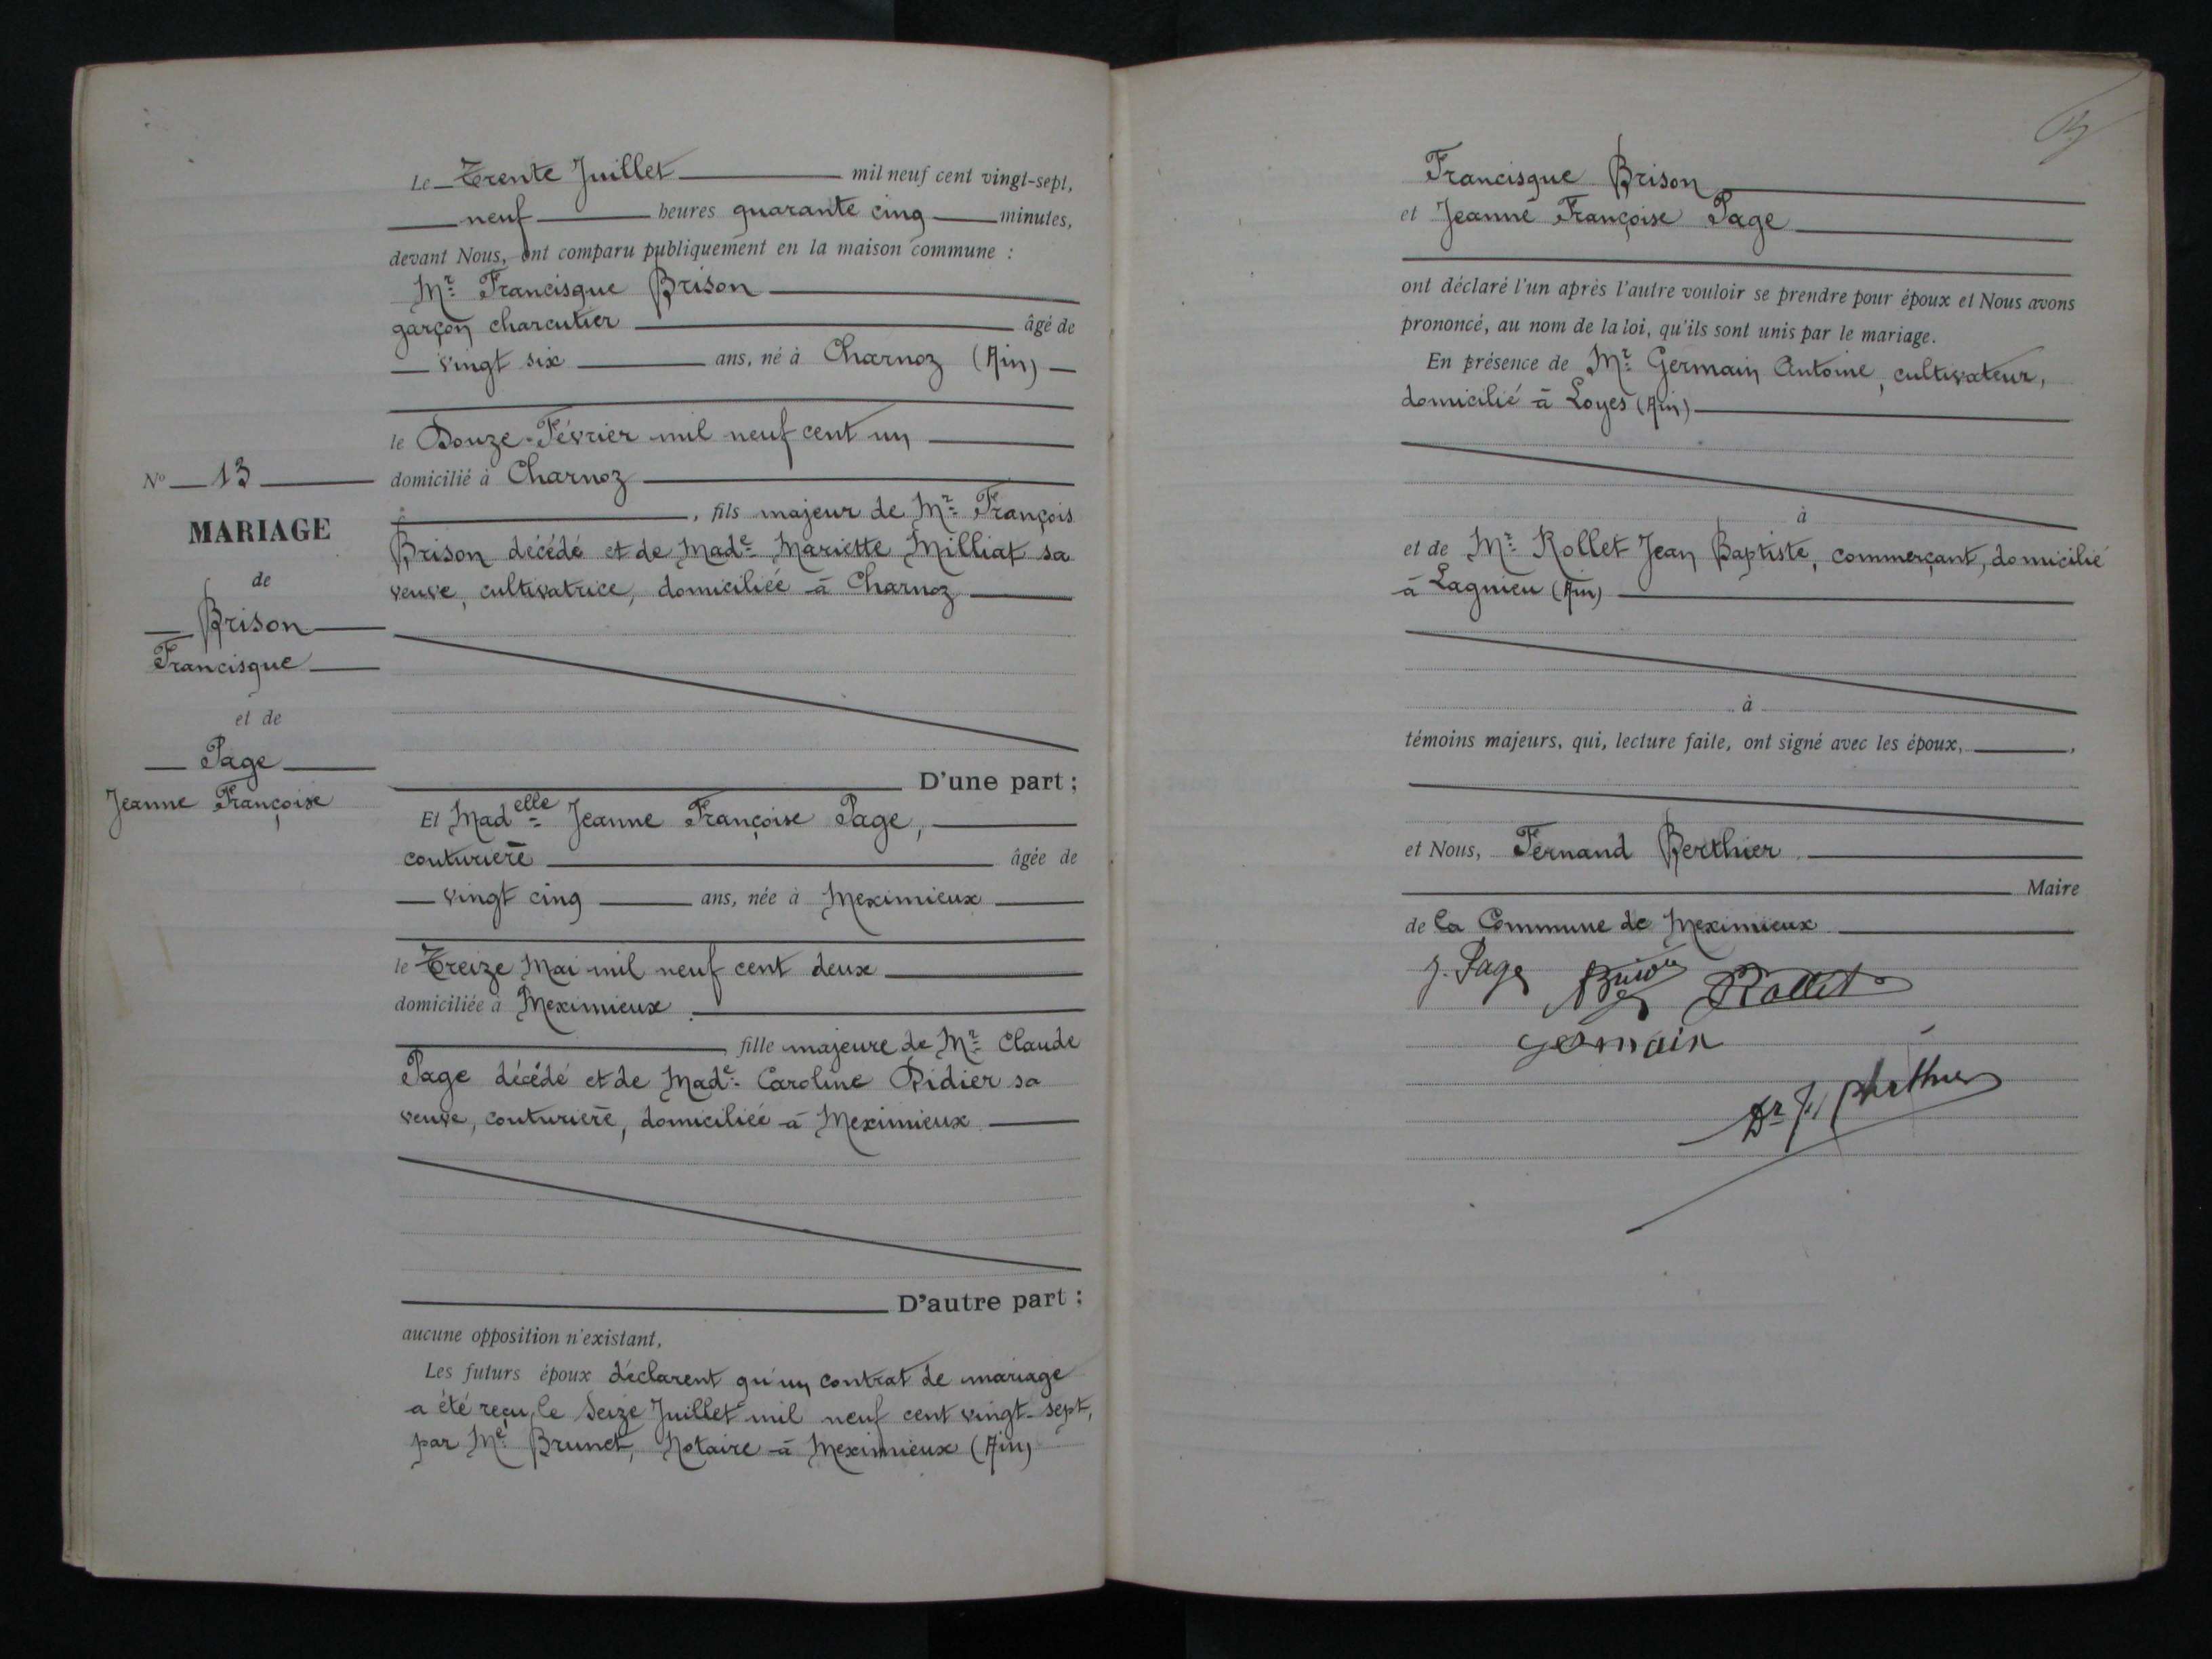 N° 13
MARIAGE
de
Brison
Francisque
et de
Page
Jeanne Françoise
Le Trente Juillet mil neuf cent vingt-sept,
neuf heures quarante cinq minutes,
devant Nous, ont comparu publiquement en la maison commune :
Mr Francisque Brison
garçon charcutier âgé de
vingt six ans, né à Charnoz (Ain)
le Douze Février mil neuf cent un
domicilié à Charnoz
, fils majeur de Mr François
Brison décédé et de Made Mariette Milliat sa
veuve, cultivatrice, domiciliée à Charnoz
D'une part ;
Et Madelle Jeanne Françoise Page,
couturière âgée de
vingt cinq ans, née à Meximieux
le Treize Mai mil neuf cent deux
domiciliée à Meximieux
fille majeure de Mr Claude
Page décédé et de Made Caroline Didier sa
veuve, couturière, domiciliée à Meximieux
D'autre part ;
aucune opposition n'existant,
Les futurs époux déclarent qu'un contrat de mariage
a été reçu, le Seize Juillet mil neuf cent vingt-sept,
par Me Brunet, Notaire à Meximieux (Ain)
Francisque Brison
et Jeanne Françoise Page
ont déclaré l'un après l'autre vouloir se prendre pour époux et Nous avons
prononcé, au nom de la loi, qu'ils sont unis par le mariage.
En présence de Mr Germain Antoine, cultivateur,
domicilié à Loyes (Ain)
à
et de Mr Rollet Jean Baptiste, commerçant, domicilié
à Lagnieu (Ain)
à
témoins majeurs, qui, lecture faite, ont signé avec les époux,
et Nous, Fernand Berthier
Maire
de la Commune de Meximieux
J. Page Brison Rollet
Germain
Dr F. Berthier